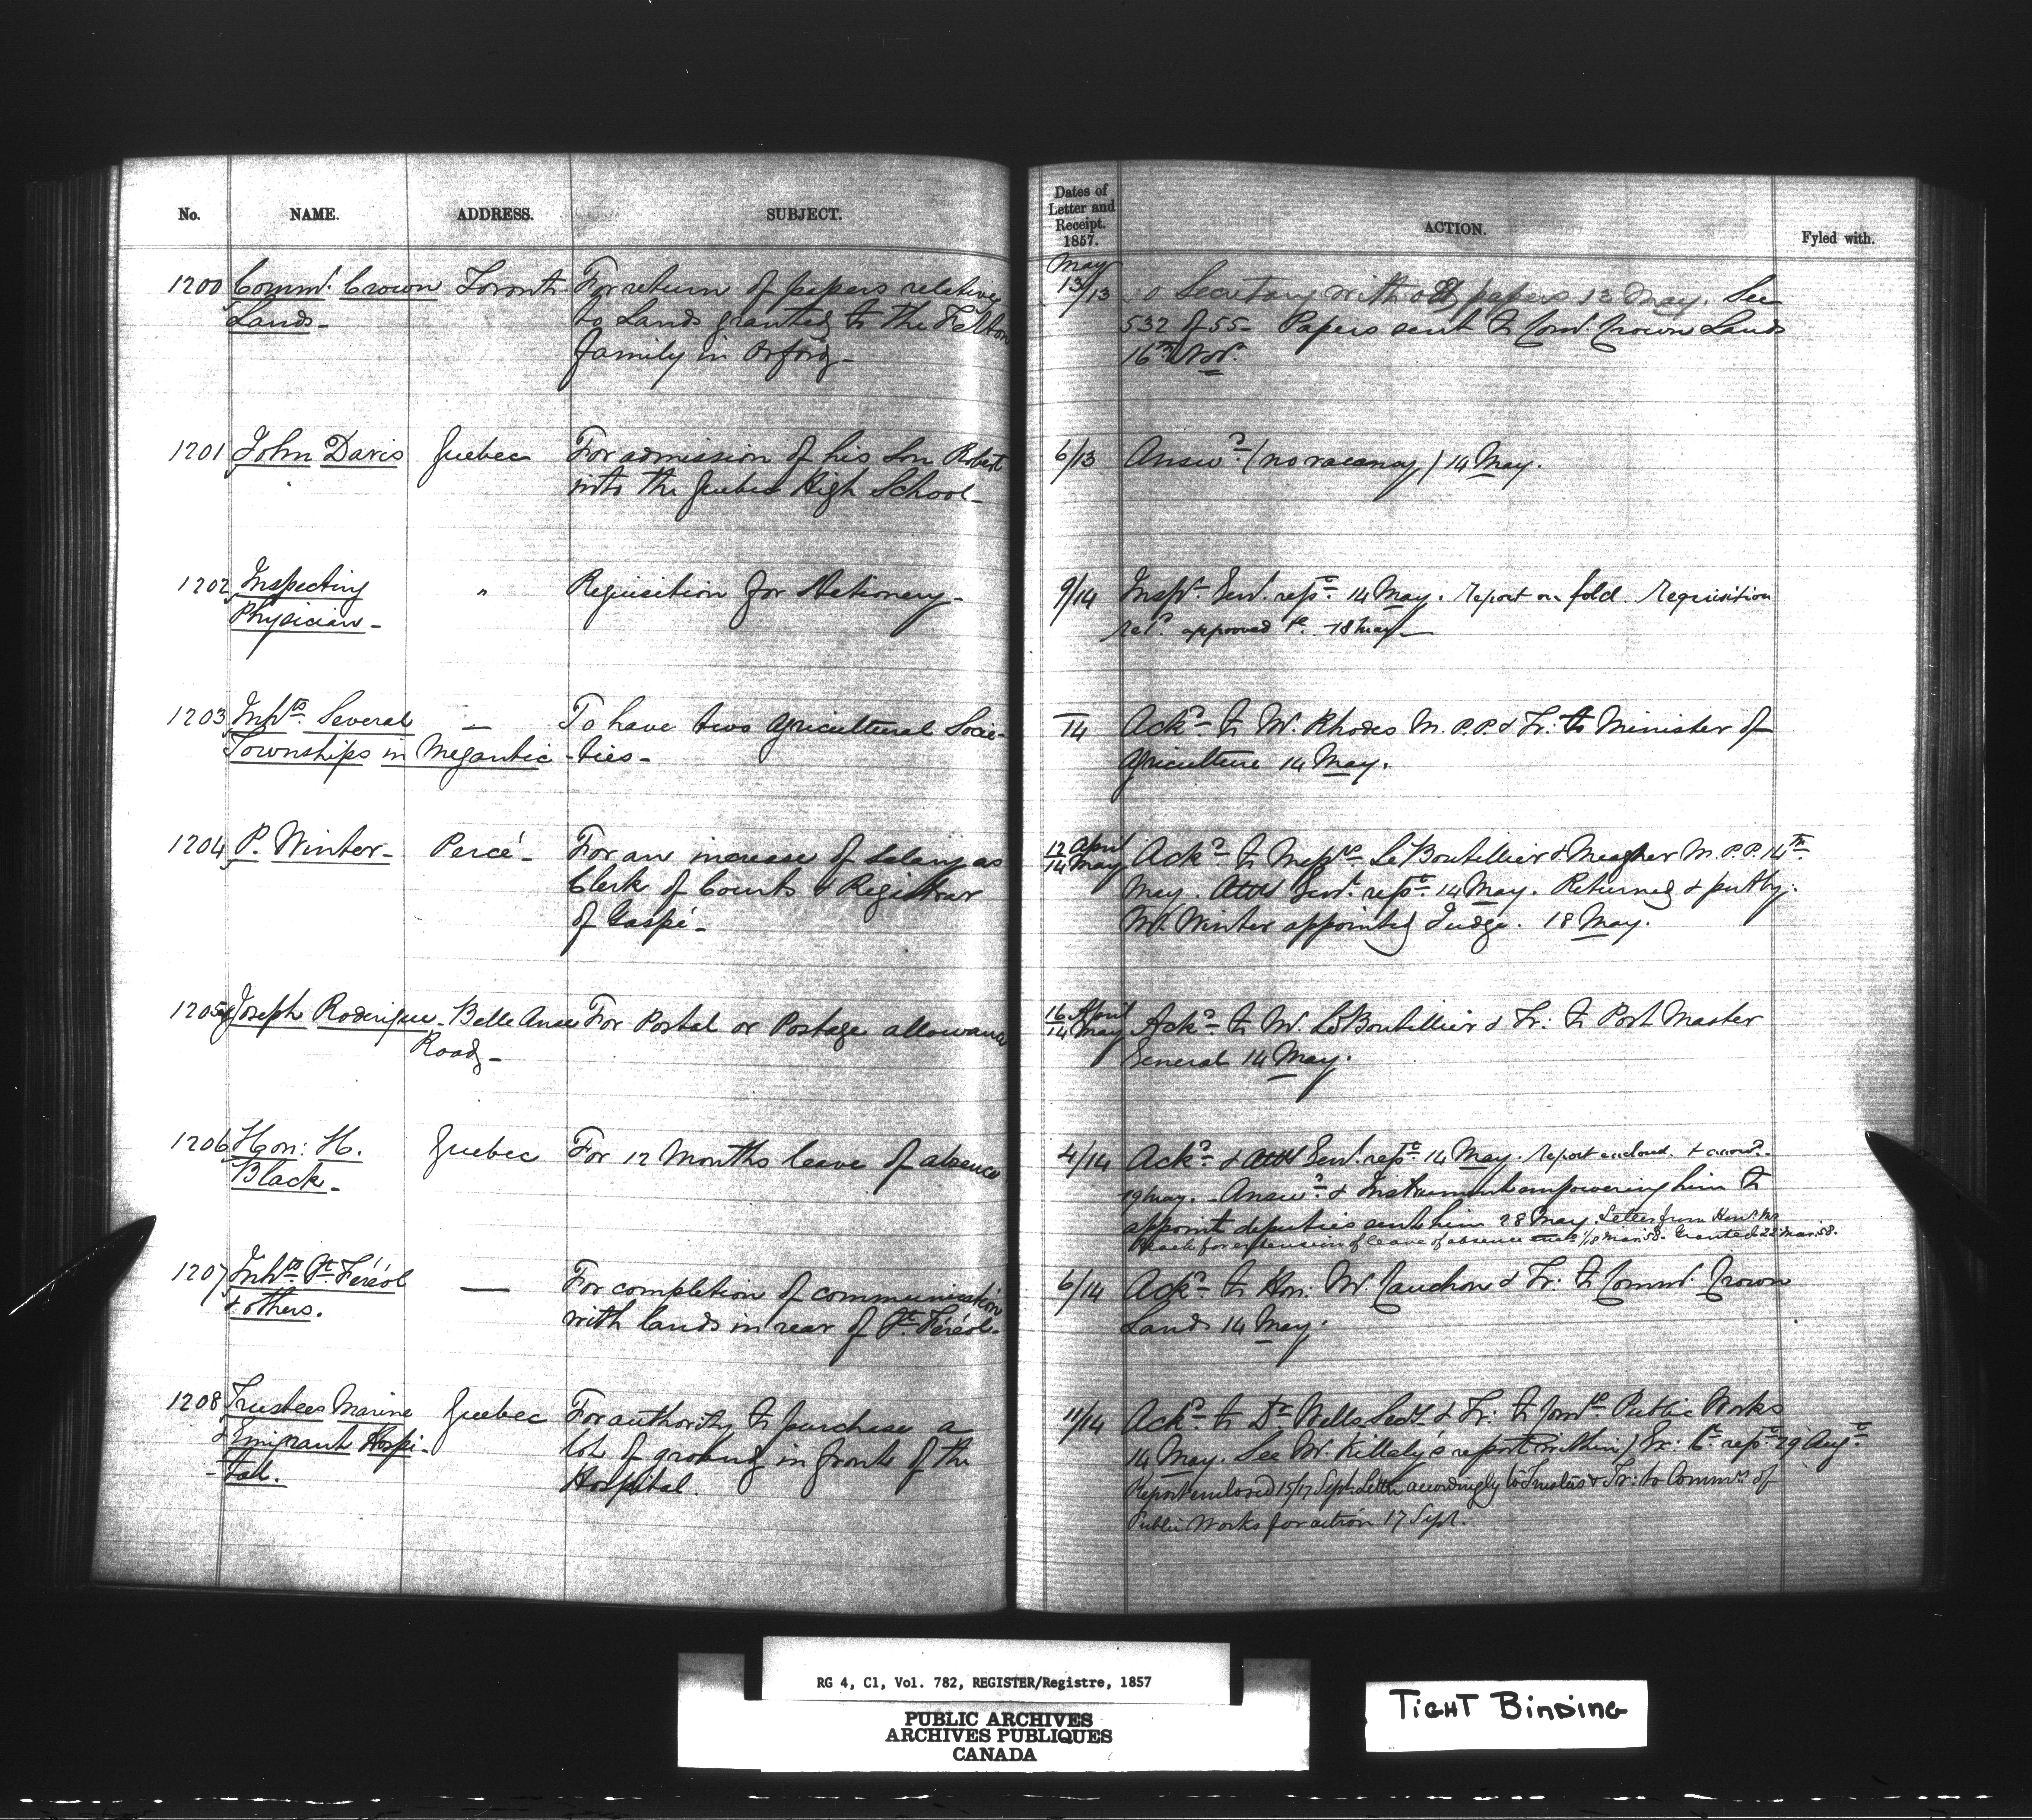 No. NAME. ADDRESS. SUBJECT.
1200 Commr. Crown Toronto For return of papers relative
Lands- to Lands granted to the Felton
family in Orford-
1201 John Davis Quebec For admission of his Son Robert
into the Quebec High School-
1202 Inspecting " Requisition for Stationery-
Physician-
1203 Inhts. Several — To have two Agricultural Socie-
Townships in Megantic -ties-
1204 P. Winter- Percé- For an increase of Salary as
Clerk of Courts & Registrar
of Gaspé-
1205 Joseph Roderique- Belle Anse For Postal or Postage allowance
Road-
1206 Hon: H. Quebec For 12 Months leave of absence
Black-
1207 Inhts. St. Féréol — For completion of communication
& others. with lands in rear of St. Féréol.
1208 Trustees Marine Quebec For authority to purchase a
& Emigrant Hospi- lot of ground in front of the
-tal. Hospital.
Dates of
Letter and
Receipt.
1857.
ACTION.
Fyled with.
May
13/13 Secretary with papers 13 May. See
532 of 55- Papers sent to Comr. Crown Lands
16th Nov.
6/13 Answd. (no vacancy) 14 May.
9/14 Inspr. Genl. rept. 14 May. Report on fold. Requisition
retd. approved 18 May
/14 Ackd. to Mr. Rhodes M.P.P. & Tr: to Minister of
Agriculture 14 May.
12 April
14 May Ackd. to Messrs. Le Boutillier & Meagher M.P.P. 14th
May. Genl. rept. 14 May. Returned & put by.
Mr. Winter appointed Judge. 18 May.
16 April
14 May Ackd. to Mr. LeBoutillier & Tr: to Post Master
General 14 May.
4/14 Ackd. & Genl. rept. 14 May. Report enclosd.
19 May. - Answd. & Instrument empowering him to
appoint deputies sent him 28 May. Letter from Hon. Mr.
Black for extension of leave of absence /18 Mar. 58. Granted 22 Mar. 58.
6/14 Ackd. to Hon: Mr. Cauchon & Tr: to Commr. Crown
Lands 14 May.
11/14 Ackd. to Dr. Wells Secy. & Tr: to Comrs. Public Works
14 May. See Mr. Killaly's report (within) Ex: C. rept. 29 Augt.
Report enclosed 15/17 Sept. Letter accordingly to Trustees & Tr: to Commrs. of
Public Works for action 17 Sept.
RG 4, C1, Vol. 782, REGISTER/Registre, 1857
PUBLIC ARCHIVES
ARCHIVES PUBLIQUES
CANADA
TIGHT BINDING